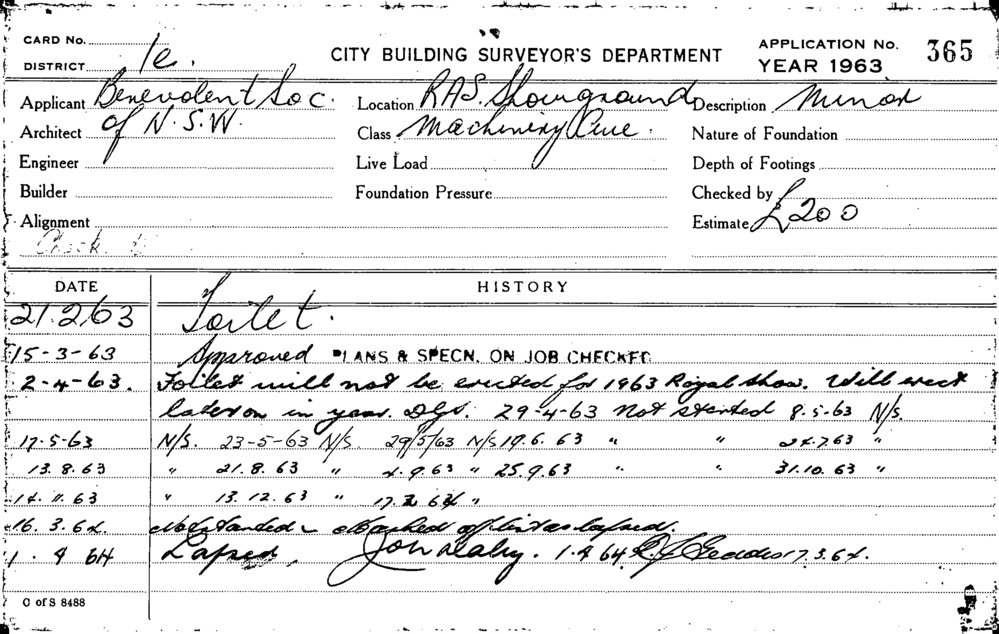 CARD No.
DISTRICT 1e.
CITY BUILDING SURVEYOR'S DEPARTMENT
APPLICATION No. 365
YEAR 1963
Applicant Benevolent Soc. Location RAS. Showground Description Minor
Architect of N.S.W. Class Machinery Ave. Nature of Foundation
Engineer Live Load Depth of Footings
Builder Foundation Pressure Checked by
Alignment Estimate £200
Check
DATE HISTORY
21.2.63 Toilet.
15-3-63 Approved PLANS & SPECN. ON JOB CHECKED
2-4-63. Toilet will not be erected for 1963 Royal Show. Will erect
later on in year. 29-4-63 Not started 8.5-63 N/S.
17.5-63 N/S. 23-5-63 N/S. 29/5/63 N/S 19.6.63 " " 24.7.63 "
13.8.63 " 21.8.63 " 4.9.63 " 25.9.63 " " 31.10.63 "
14.11.63 " 13.12.63 " 17.2.64 "
16.3.64. Not Started - Marked off list as lapsed.
1.4 64 Lapsed. 1.4 64 17.3.64.
C of S 8488